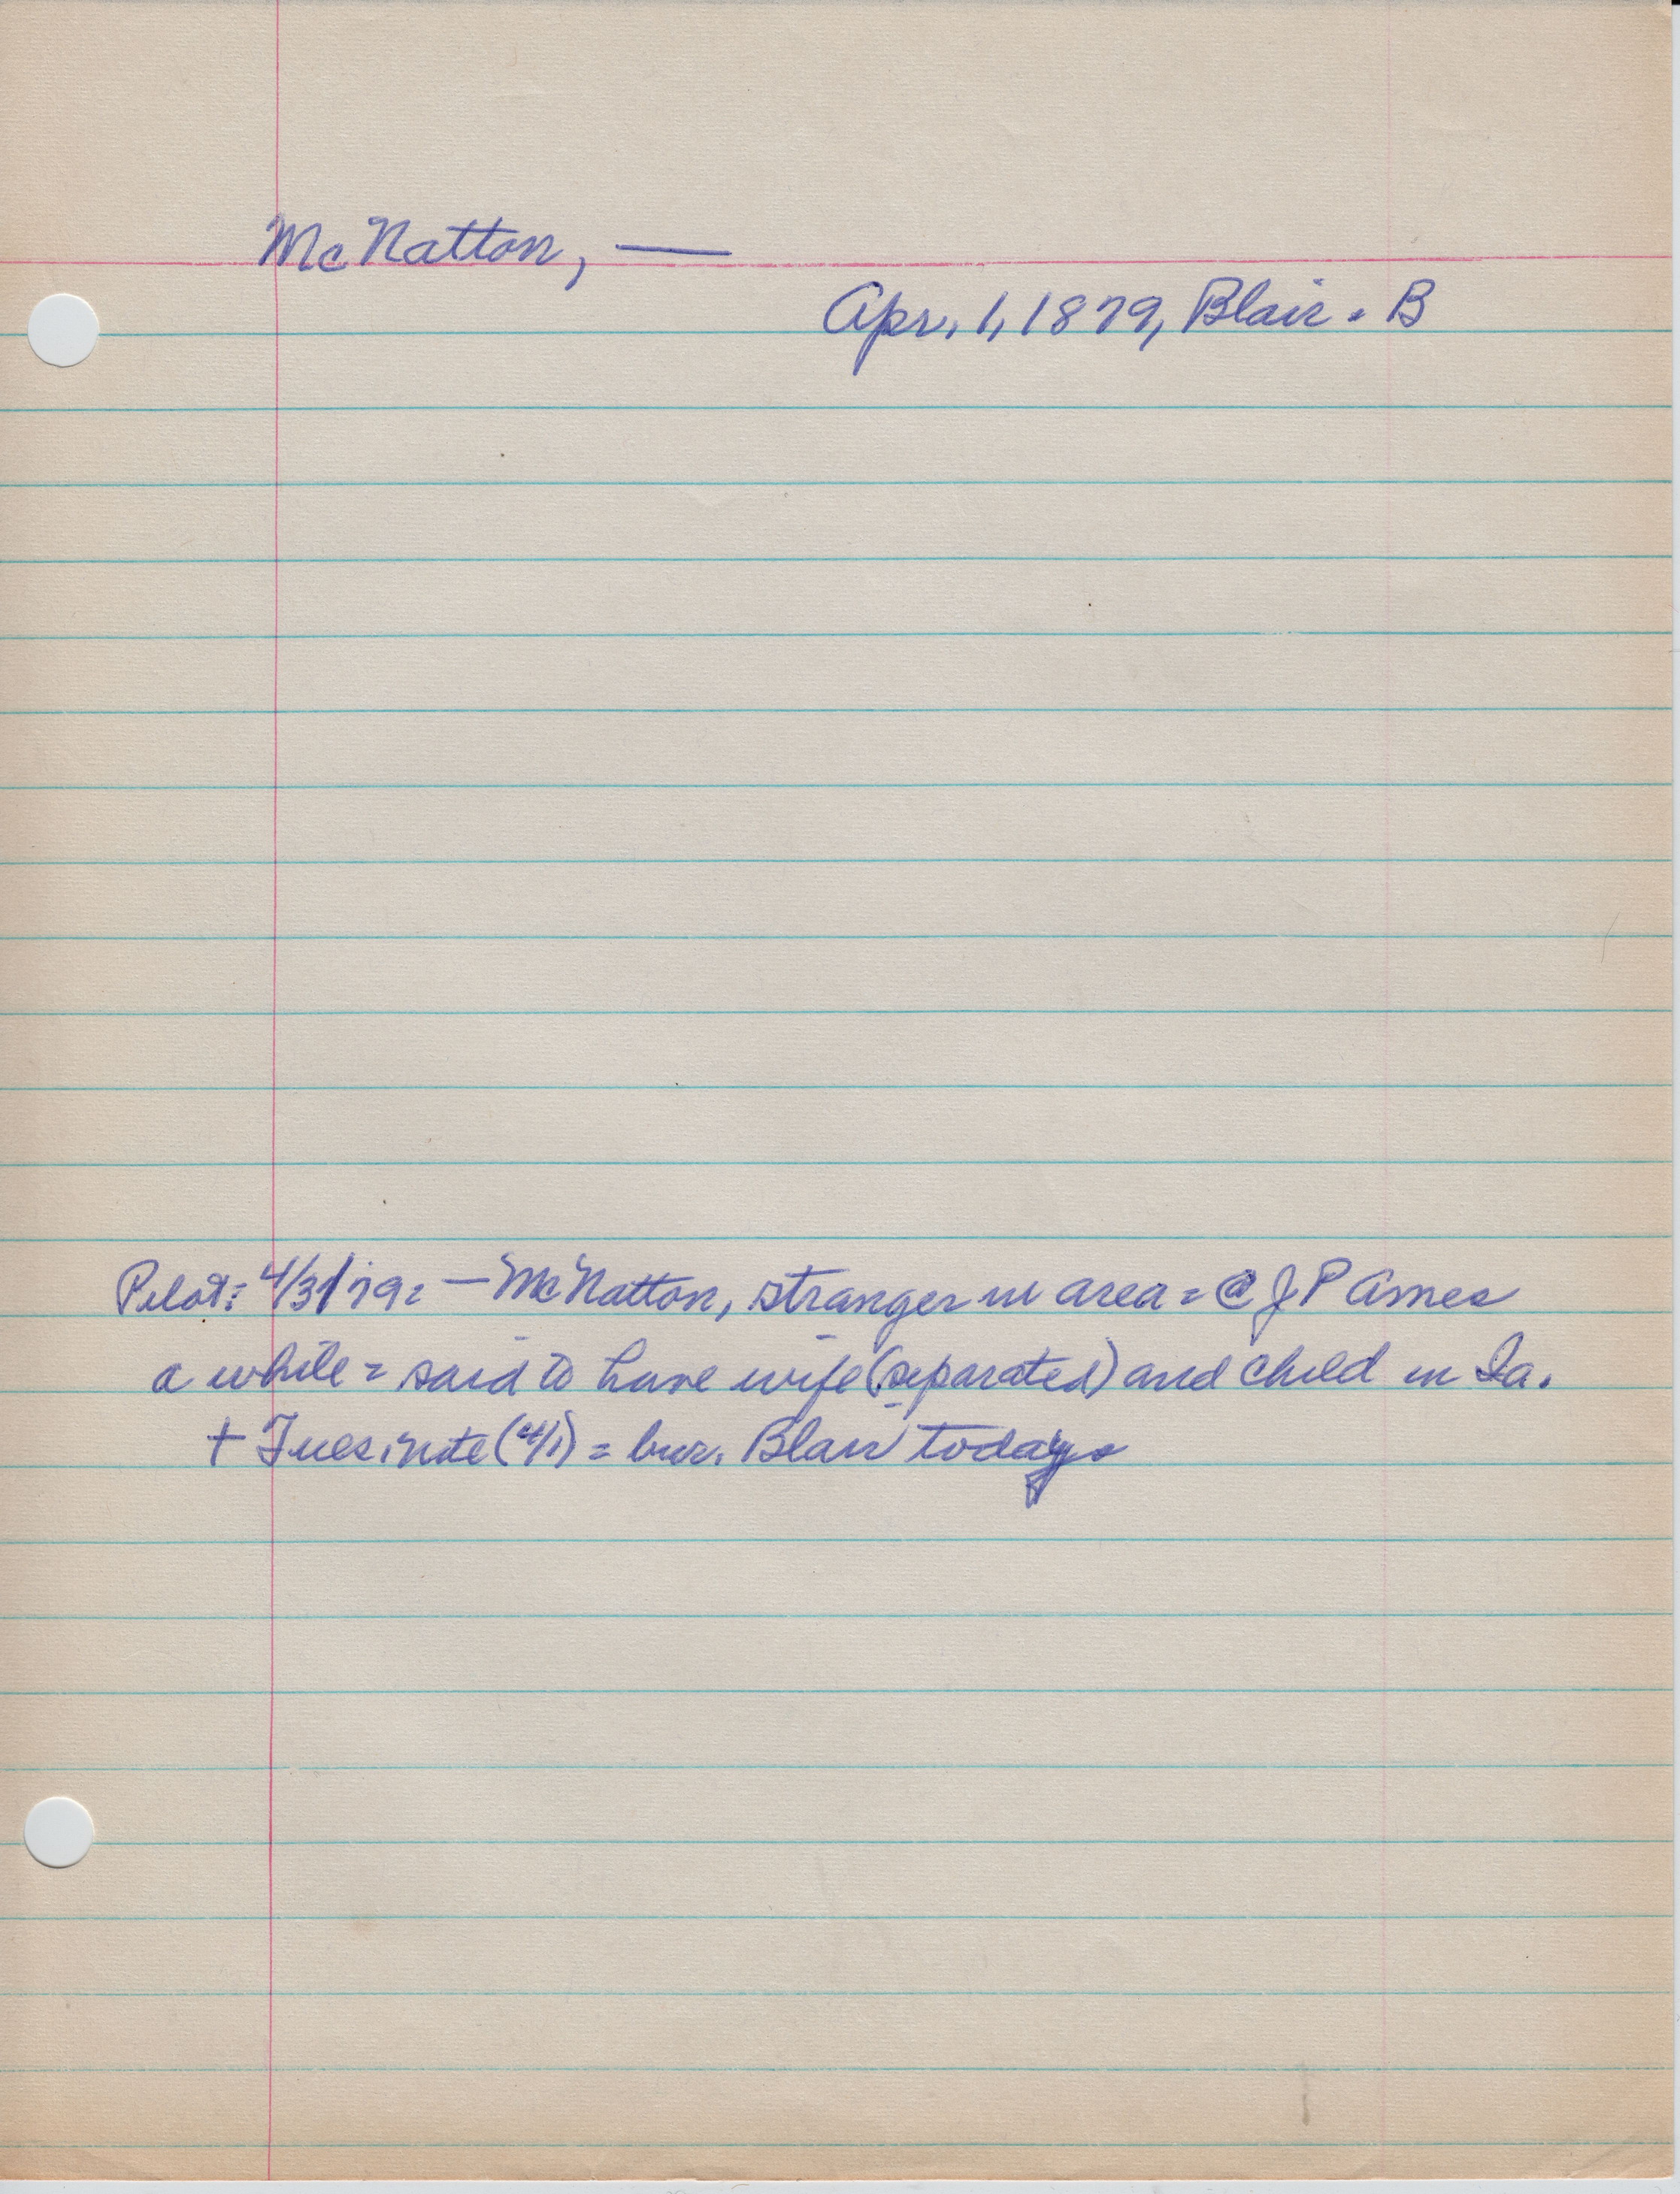 McNatton, —
Apr. 1, 1879, Blair. B
Pilot: 4/3/79: — McNatton, stranger in area = @ J P Ames
a while = said to have wife (separated) and child in Ia.
+ Tues. nite (4/1) = bur. Blair today